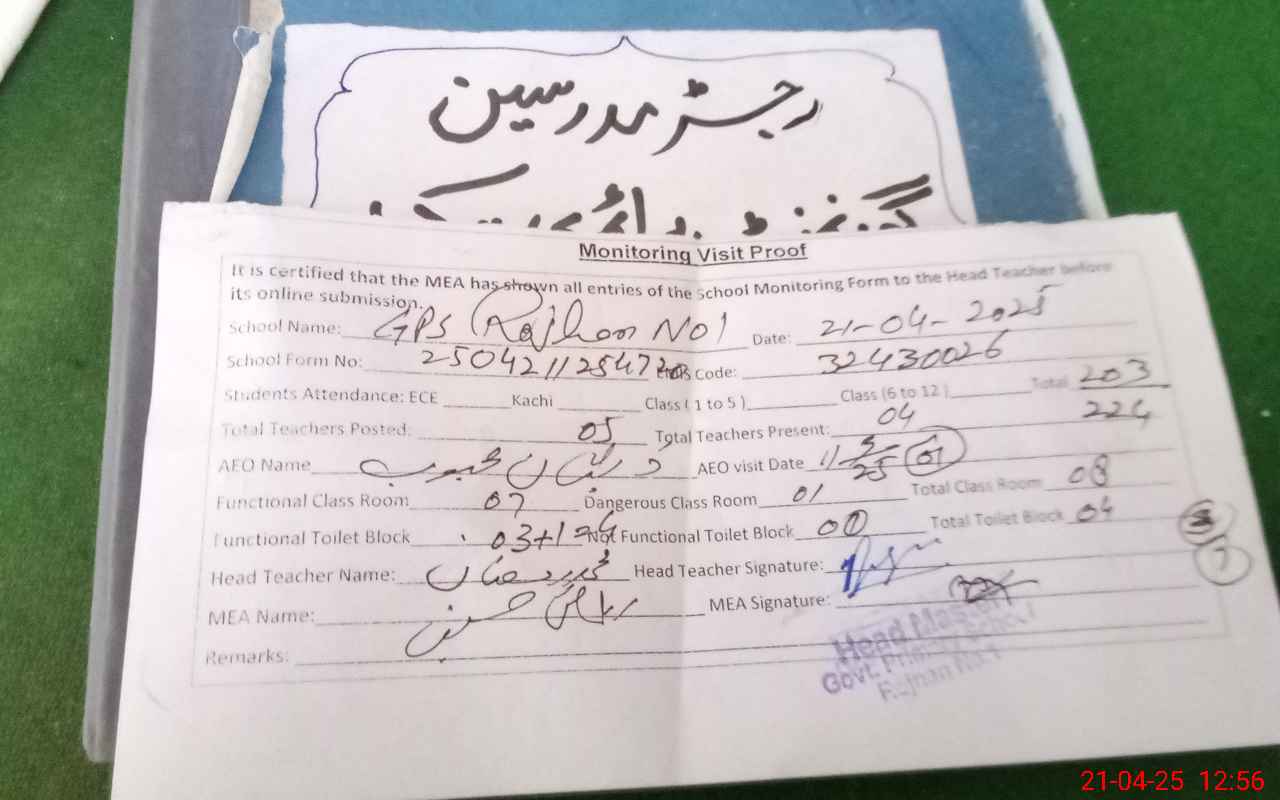 رجسٹر مدرسین
Monitoring Visit Proof
It is certified that the MEA has shown all entries of the School Monitoring Form to the Head Teacher before
its online submission.
School Name: GPS Rajhan No 1 Date: 21-04-2025
School Form No: Code: 32430026
Students Attendance: ECE Kachi Class ( 1 to 5 ) Class (6 to 12 ) Total 203
224
Total Teachers Posted: 05 Total Teachers Present: 04
AEO Name محبوب AEO visit Date
Functional Class Room 07 Dangerous Class Room 01 Total Class Room 08
Functional Toilet Block 03+1=4 Not Functional Toilet Block 00 Total Toilet Block 04
Head Teacher Name: محمد رمضان Head Teacher Signature:
MEA Name: حسن MEA Signature:
Remarks:
Head Master
Govt. Primary School
Rajhan No.1
21-04-25 12:56